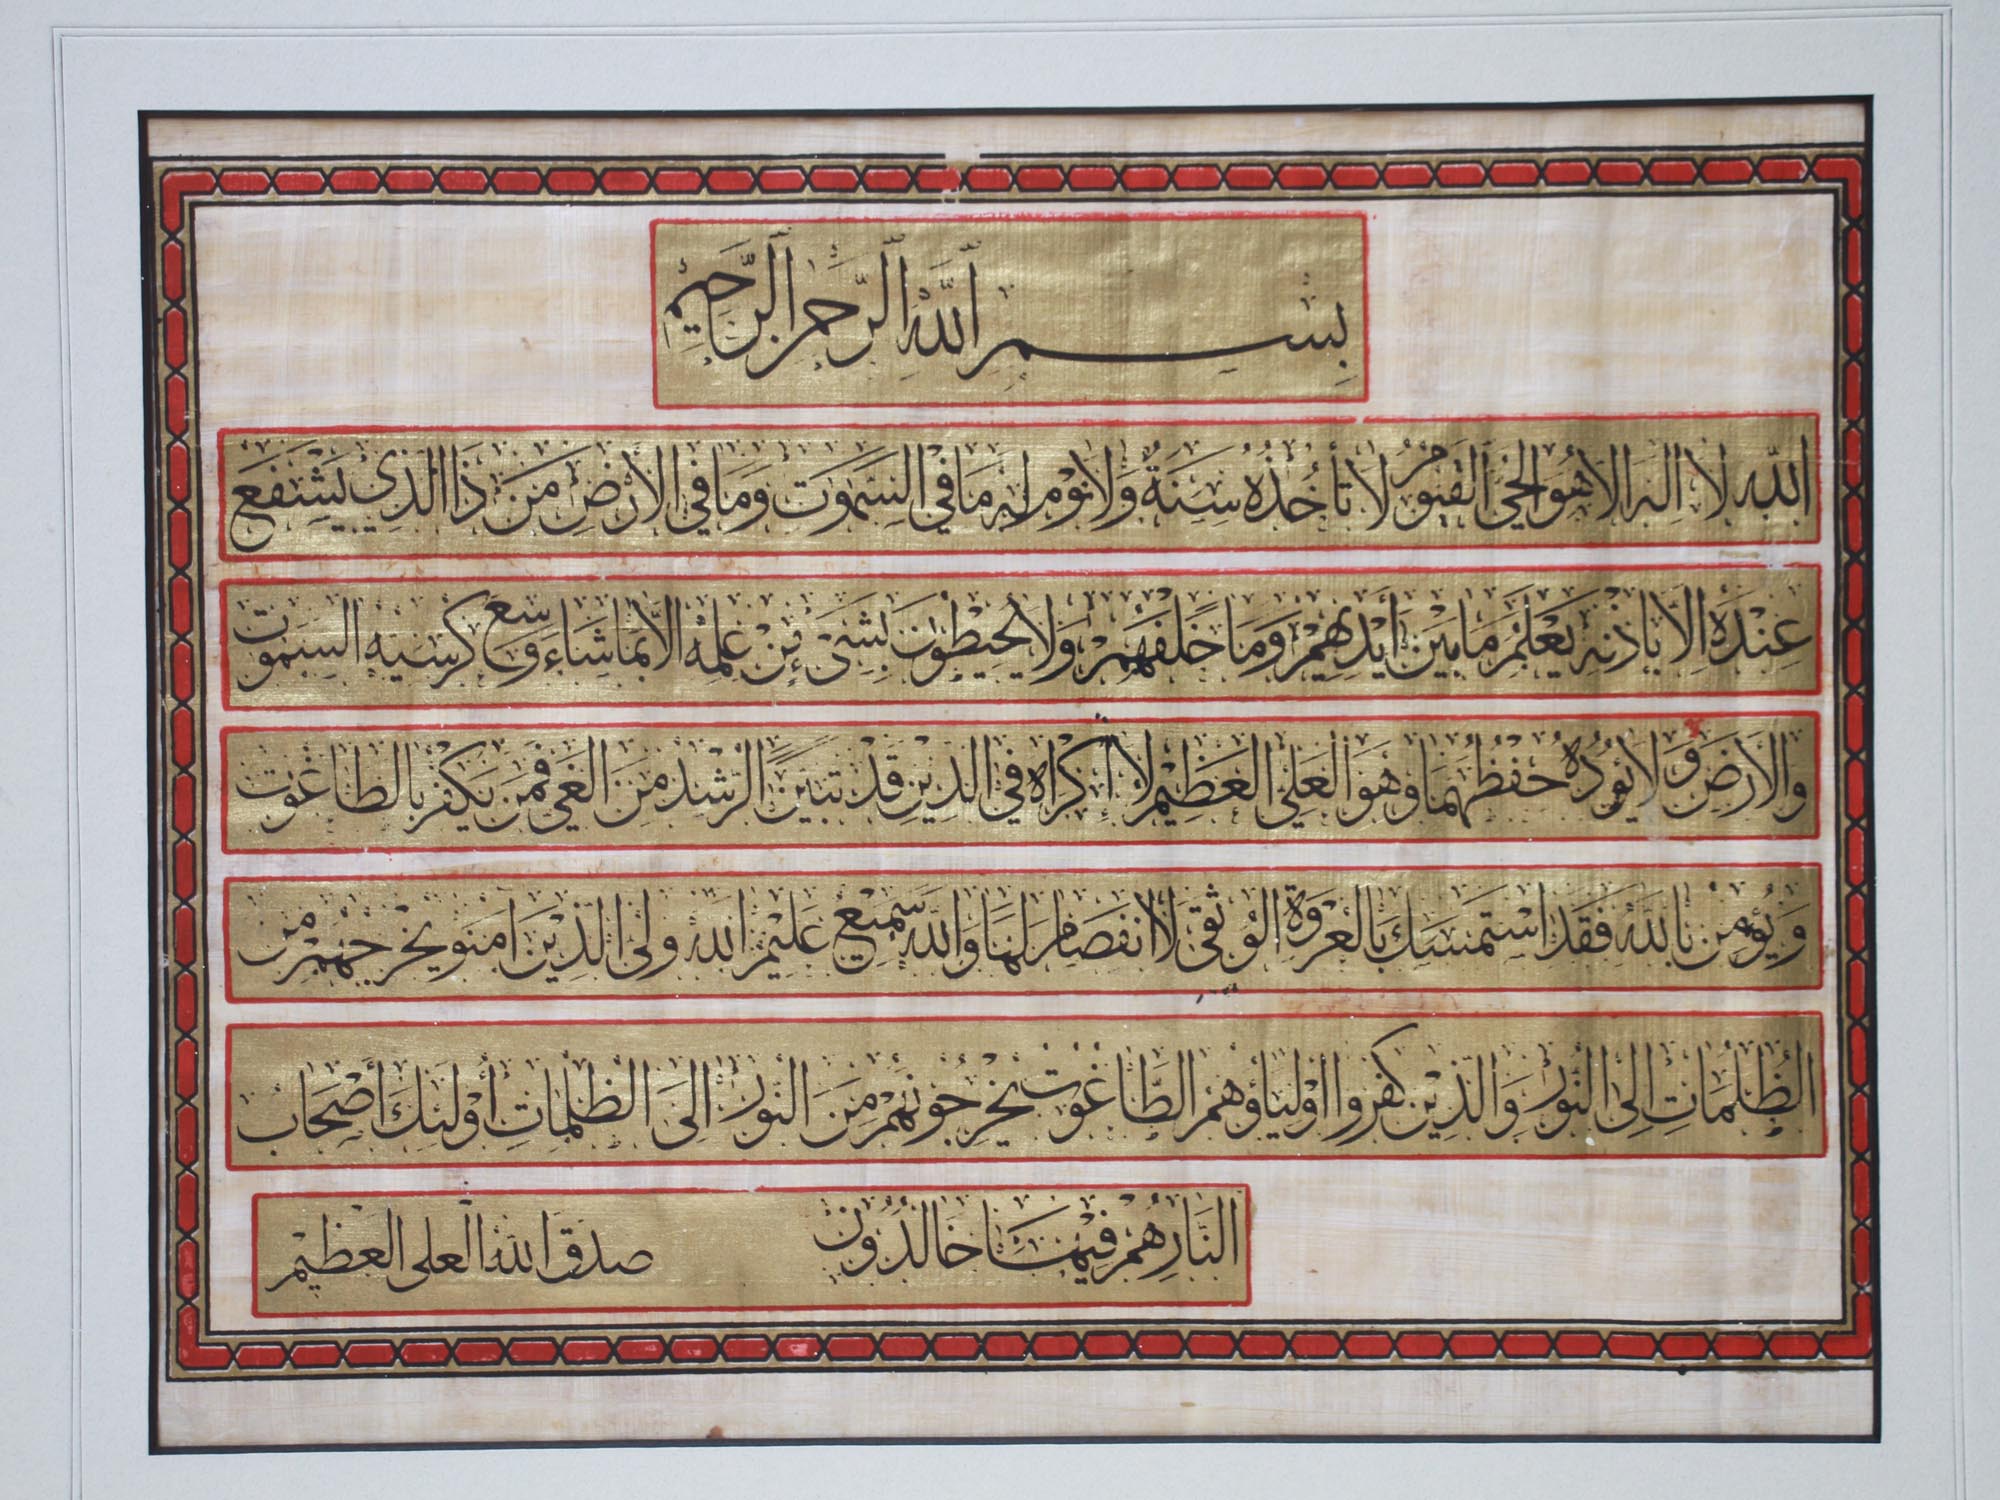 بِسْمِ ٱللَّهِ ٱلرَّحْمَٰنِ ٱلرَّحِيمِ
الله لا اله الا هو الحي القيوم لا تأخذه سنة ولا نوم له ما في السموت وما في الأرض من ذا الذي يشفع
عنده الا بإذنه يعلم ما بين أيديهم وما خلفهم ولا يحيطون بشيء من علمه الا بما شاء وسع كرسيه السموت
والأرض ولا يؤده حفظهما وهو العلي العظيم لا إكراه في الدين قد تبين الرشد من الغي فمن يكفر بالطاغوت
ويؤمن بالله فقد استمسك بالعروة الوثقى لا انفصام لها والله سميع عليم الله ولي الذين امنو يخرجهم من
الظلمات الى النور والذين كفروا أولياؤهم الطاغوت يخرجونهم من النور الى الظلمات أولئك أصحاب
النار هم فيها خالدون صدق الله العلي العظيم